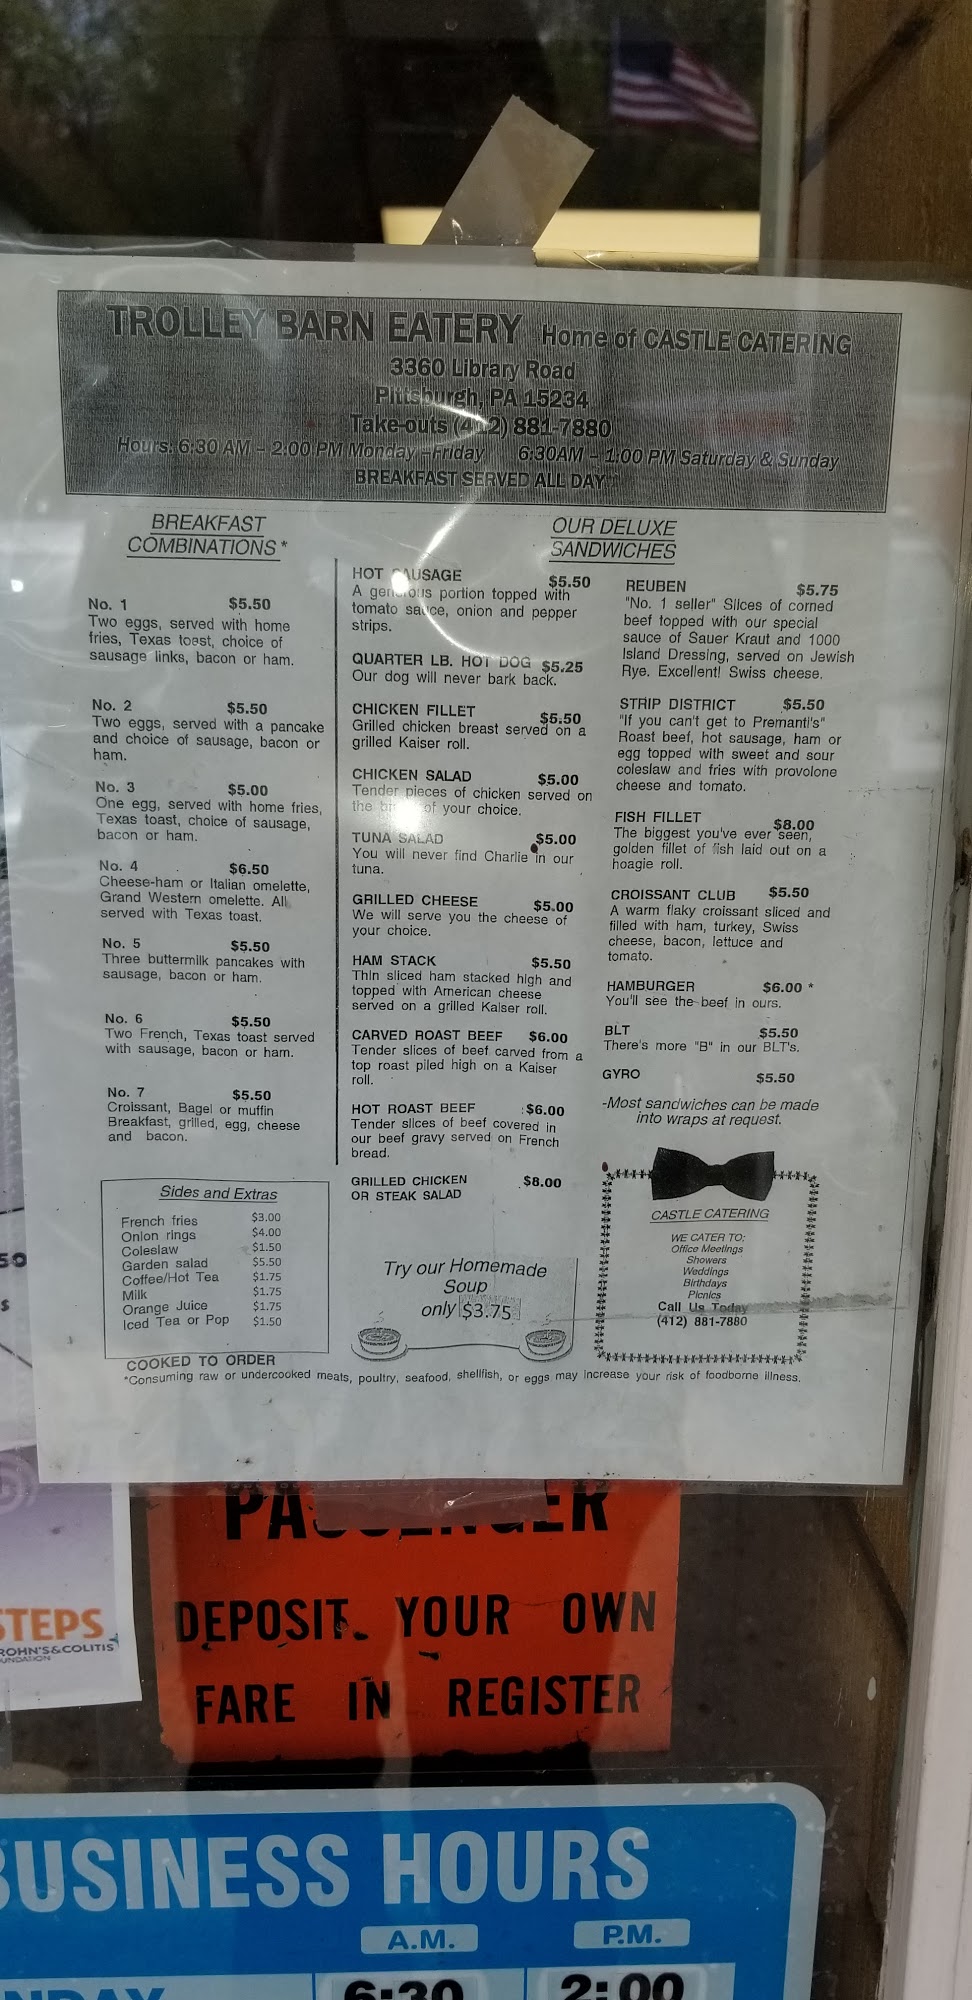 TROLLEY BARN EATERY Home of CASTLE CATERING
3360 Library Road
Pittsburgh, PA 15234
Take-outs (412) 881-7880
Hours: 6:30 AM – 2:00 PM Monday –Friday 6:30AM – 1:00 PM Saturday & Sunday
BREAKFAST SERVED ALL DAY
BREAKFAST
COMBINATIONS *
No. 1 $5.50
Two eggs, served with home
fries, Texas toast, choice of
sausage links, bacon or ham.
No. 2 $5.50
Two eggs, served with a pancake
and choice of sausage, bacon or
ham.
No. 3 $5.00
One egg, served with home fries,
Texas toast, choice of sausage,
bacon or ham.
No. 4 $6.50
Cheese-ham or Italian omelette,
Grand Western omelette. All
served with Texas toast.
No. 5 $5.50
Three buttermilk pancakes with
sausage, bacon or ham.
No. 6 $5.50
Two French, Texas toast served
with sausage, bacon or ham.
No. 7 $5.50
Croissant, Bagel or muffin
Breakfast, grilled, egg, cheese
and bacon.
Sides and Extras
French fries $3.00
Onion rings $4.00
Coleslaw $1.50
Garden salad $5.50
Coffee/Hot Tea $1.75
Milk $1.75
Orange Juice $1.75
Iced Tea or Pop $1.50
OUR DELUXE
SANDWICHES
HOT SAUSAGE $5.50
A generous portion topped with
tomato sauce, onion and pepper
strips.
QUARTER LB. HOT DOG $5.25
Our dog will never bark back.
CHICKEN FILLET $5.50
Grilled chicken breast served on a
grilled Kaiser roll.
CHICKEN SALAD $5.00
Tender pieces of chicken served on
the of your choice.
TUNA SALAD $5.00
You will never find Charlie in our
tuna.
GRILLED CHEESE $5.00
We will serve you the cheese of
your choice.
HAM STACK $5.50
Thin sliced ham stacked high and
topped with American cheese
served on a grilled Kaiser roll.
CARVED ROAST BEEF $6.00
Tender slices of beef carved from a
top roast piled high on a Kaiser
roll.
HOT ROAST BEEF $6.00
Tender slices of beef covered in
our beef gravy served on French
bread.
GRILLED CHICKEN $8.00
OR STEAK SALAD
Try our Homemade
Soup
only $3.75
REUBEN $5.75
"No. 1 seller" Slices of corned
beef topped with our special
sauce of Sauer Kraut and 1000
Island Dressing, served on Jewish
Rye. Excellent! Swiss cheese.
STRIP DISTRICT $5.50
"If you can't get to Premanti's"
Roast beef, hot sausage, ham or
egg topped with sweet and sour
coleslaw and fries with provolone
cheese and tomato.
FISH FILLET $8.00
The biggest you've ever seen,
golden fillet of fish laid out on a
hoagie roll.
CROISSANT CLUB $5.50
A warm flaky croissant sliced and
filled with ham, turkey, Swiss
cheese, bacon, lettuce and
tomato.
HAMBURGER $6.00 *
You'll see the beef in ours.
BLT $5.50
There's more "B" in our BLT's.
GYRO $5.50
-Most sandwiches can be made
into wraps at request.
CASTLE CATERING
WE CATER TO:
Office Meetings
Showers
Weddings
Birthdays
Picnics
Call Us Today
(412) 881-7880
COOKED TO ORDER
*Consuming raw or undercooked meats, poultry, seafood, shellfish, or eggs may increase your risk of foodborne illness.
PASSENGER
DEPOSIT YOUR OWN
FARE IN REGISTER
STEPS
ROHN'S & COLITIS
UNDATION
BUSINESS HOURS
A.M. P.M.
NDAY 6:30 2:00